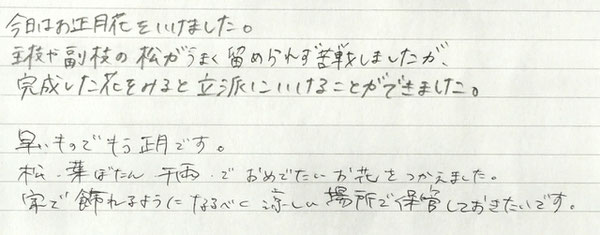 今日はお正月花をいけました。
主枝や副枝の松がうまく留められず苦戦しましたが、
完成した花をみると立派にいけることができました。
早いものでもう正月です。
松・葉ぼたん 千両・でおめでたいお花をつかえました。
家で飾れるようになるべく涼しい場所で保管しておきたいです。